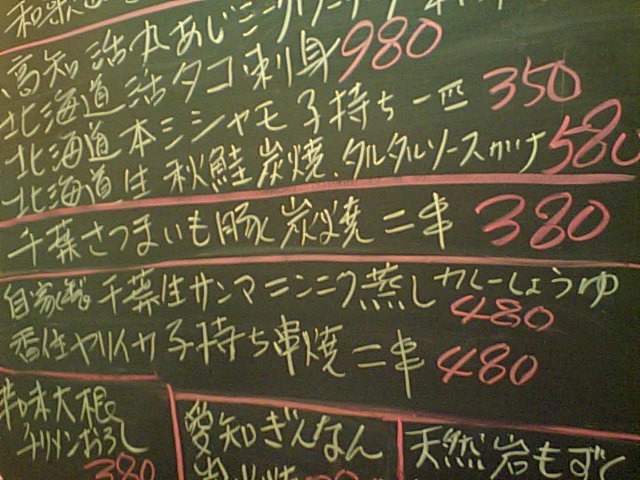 高知 活〆あじ
北海道活タコ刺身 980
北海道本シシャモ子持ち一匹 350
北海道生秋鮭炭焼、タルタルソースがけ 580
千葉さつまいも豚炭焼二串 380
自家製千葉生サンマニンニク蒸しカレーしょうゆ 480
香住ヤリイカ子持ち串焼二串 480
大根
チリメンおろし
380
愛知ぎんなん
天然岩もずく